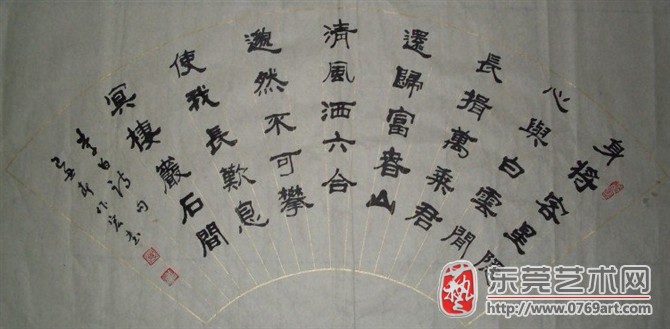 身將客星隱
心與白雲閒
長揖萬乘君
還歸富春山
清風洒六合
邈然不可攀
使我長歎息
冥棲巖石間
李白詩句
己丑年
东莞艺术网
http://www.0769art.com